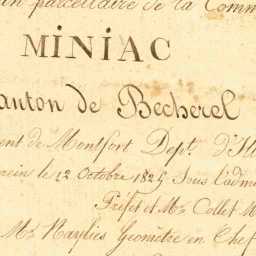 n parcellaire de la Comm
MINIAC
anton de Becherel
ent de Montfort Dept. d'Ill
rein le 12 Octobre 1825 Sous l'adm
Préfet et Mr. Collet M
Mr. Naylies Géomètre en Chef